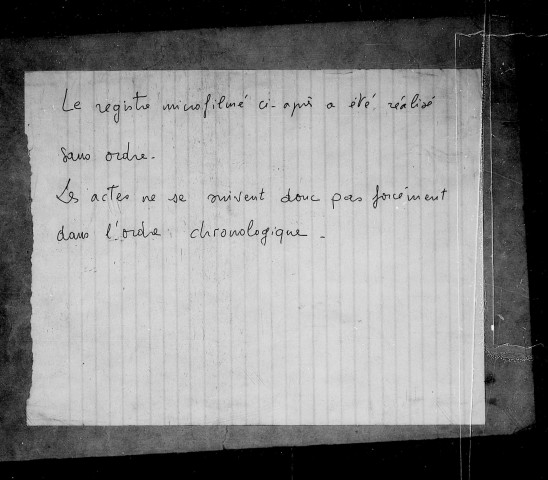 Le registre microfilmé ci-après a été réalisé
sans ordre.
Les actes ne se suivent donc pas forcément
dans l'ordre chronologique.